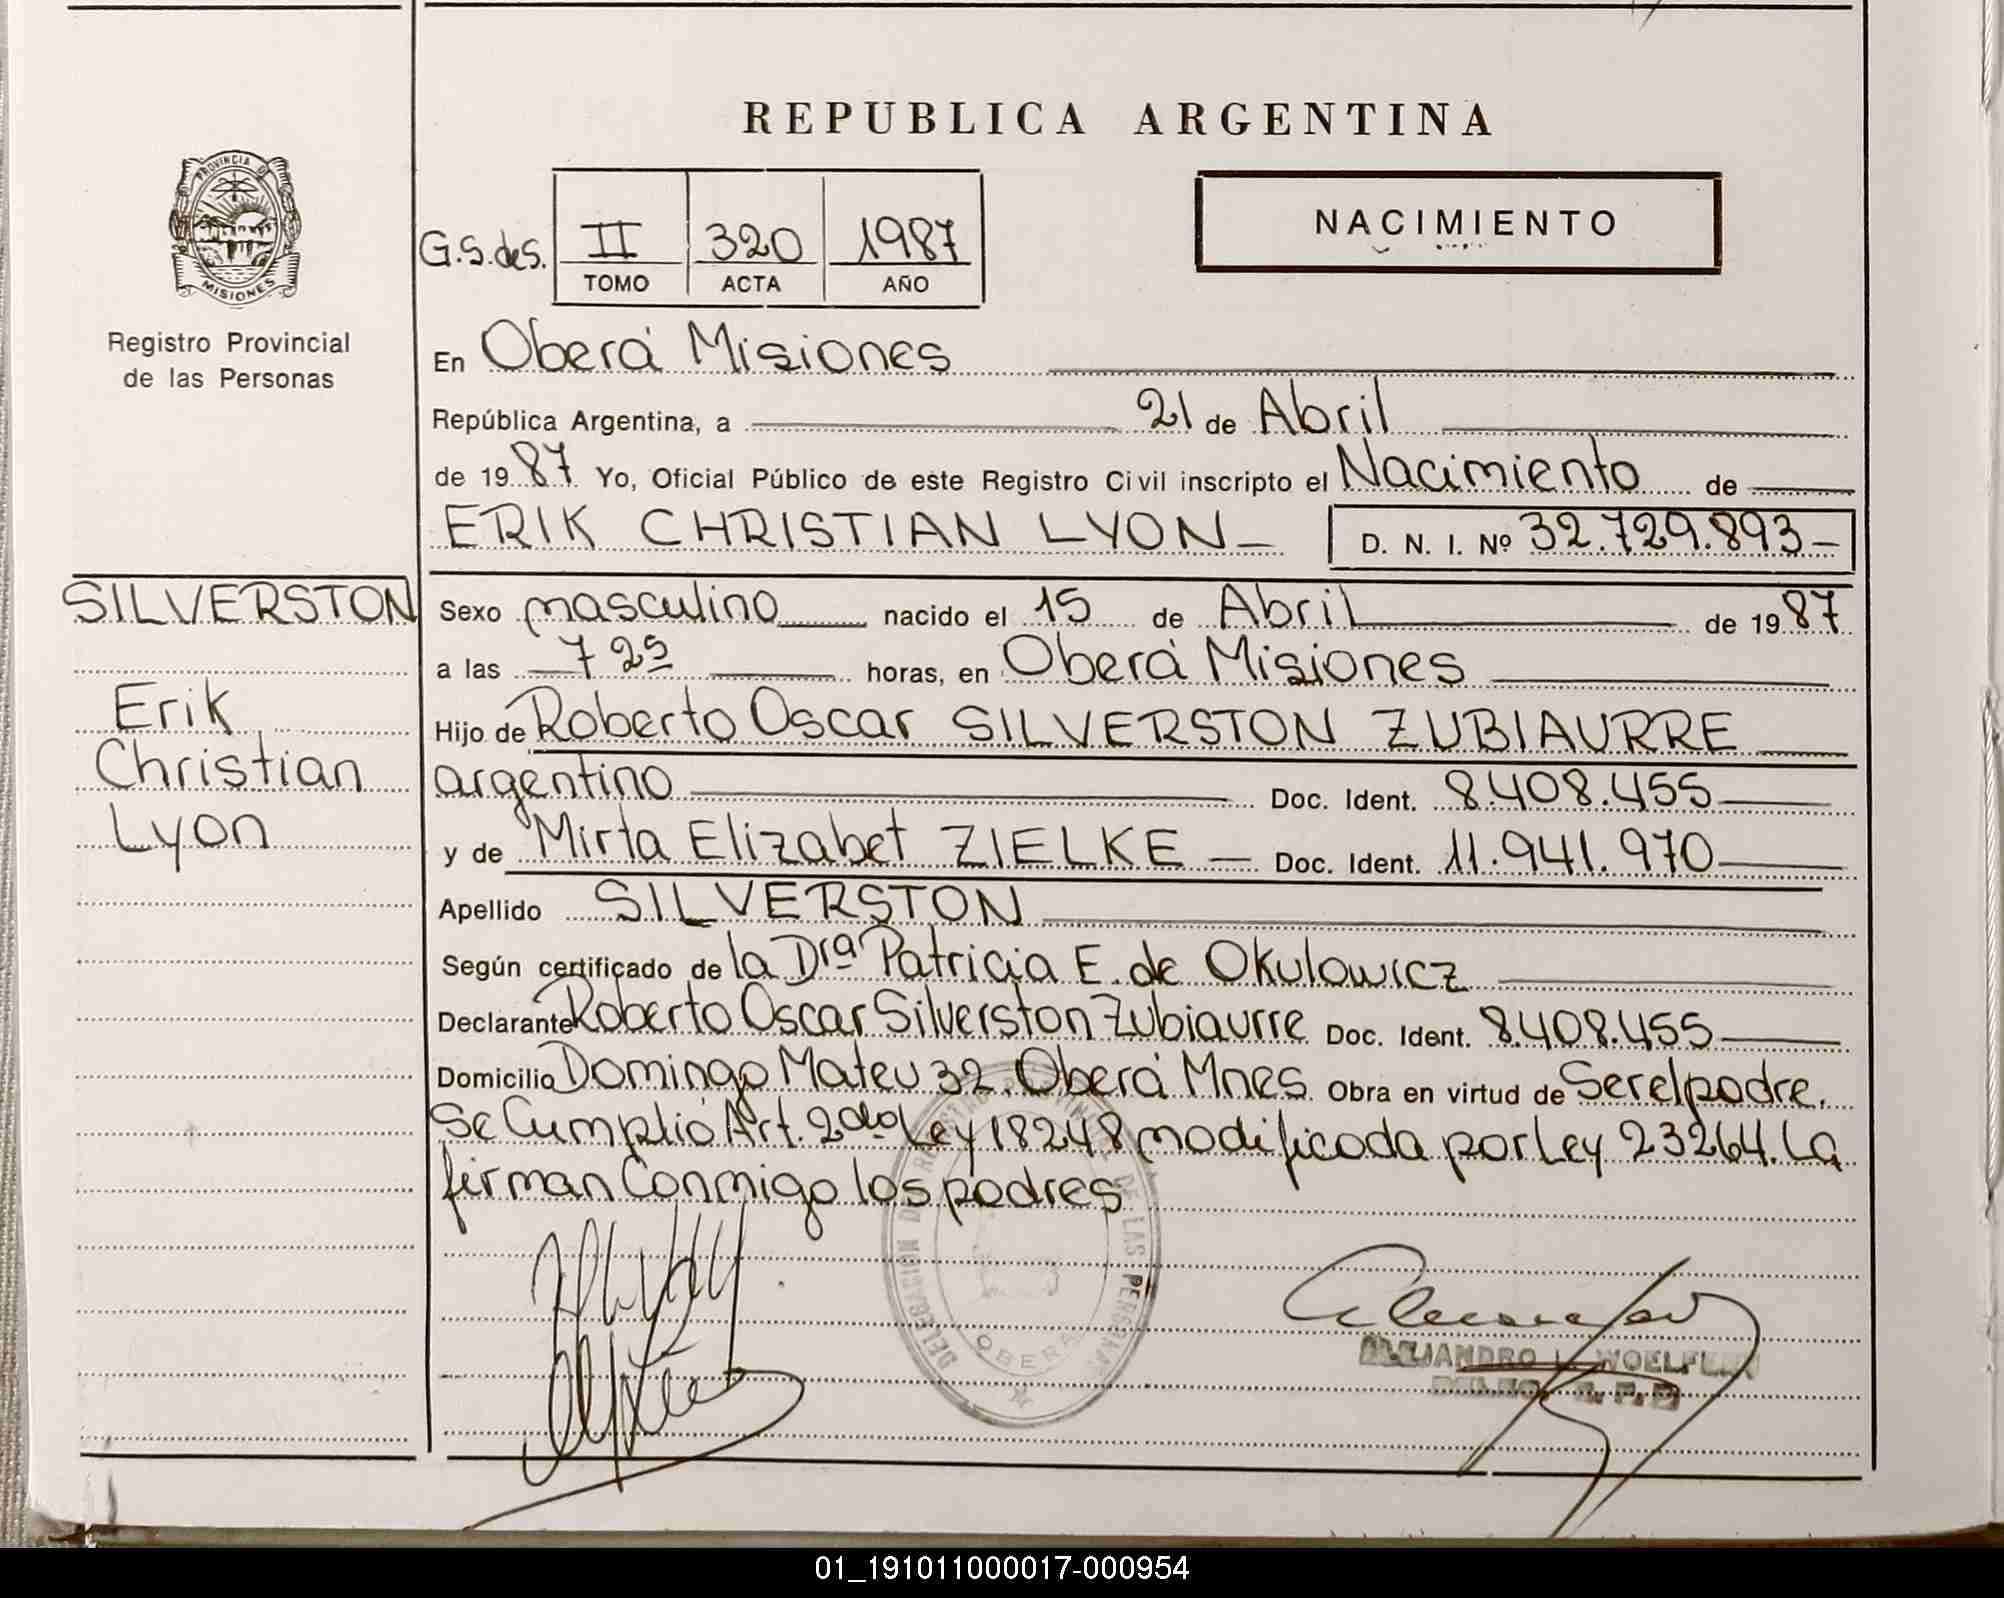 REPUBLICA ARGENTINA
PROVINCIA DE
MISIONES
Registro Provincial
de las Personas
G.S.des. II 320 1987
TOMO ACTA AÑO
NACIMIENTO
En Oberá Misiones
República Argentina, a 21 de Abril
de 1987 Yo, Oficial Público de este Registro Civil inscripto el Nacimiento de
ERIK CHRISTIAN LYON D. N. I. Nº 32.729.893
SILVERSTON
Erik
Christian
Lyon
Sexo masculino nacido el 15 de Abril de 1987
a las 7 25 horas, en Oberá Misiones
Hijo de Roberto Oscar SILVERSTON ZUBIAURRE
argentino Doc. Ident. 8.408.455
y de Mirta Elizabet ZIELKE Doc. Ident. 11.941.970
Apellido SILVERSTON
Según certificado de la Drª Patricia E. de Okulowicz
Declarante Roberto Oscar Silverston Zubiaurre Doc. Ident. 8.408.455
Domicilio Domingo Mateu 32. Oberá Mnes. Obra en virtud de Ser el padre.
Se Cumplió Art. 2do Ley 18248 modificada por Ley 23264. La
firman Conmigo los padres
DELEGACION DE REGISTRO PROVINCIAL DE LAS PERSONAS
OBERA
ALEJANDRO L. WOELFLIN
01_191011000017-000954